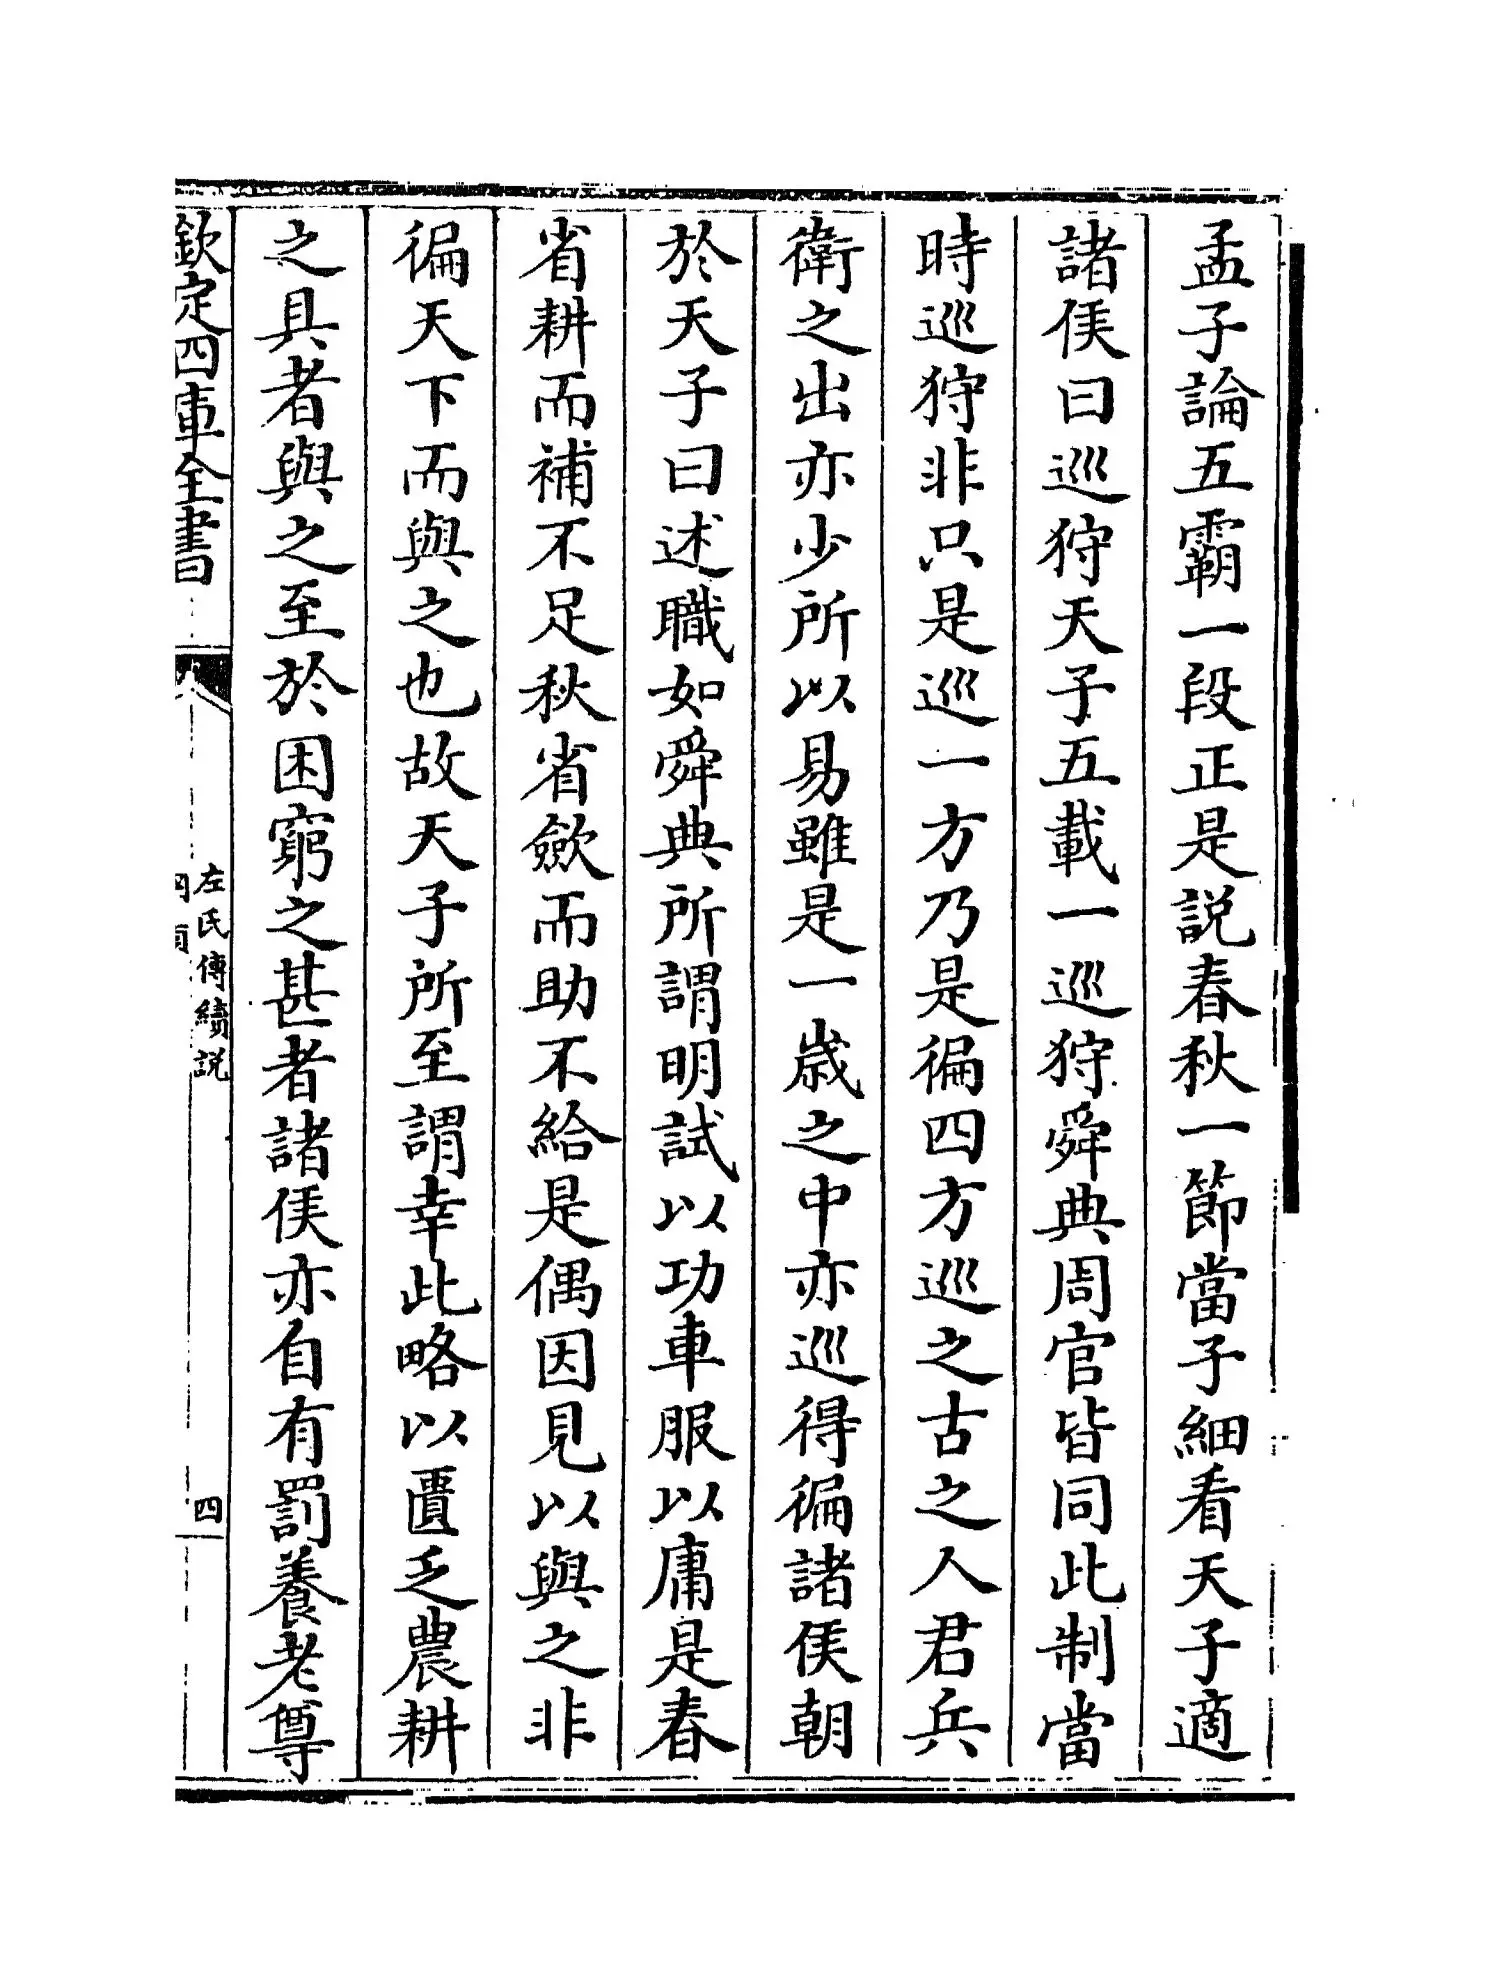 孟子論五霸一段正是説春秋一節當子細看天子適
諸侯曰巡狩天子五載一巡狩舜典周官皆同此制當
時巡狩非只是巡一方乃是徧四方巡之古之人君兵
衛之出亦少所以易雖是一歳之中亦巡得徧諸侯朝
於天子曰述職如舜典所謂明試以功車服以庸是春
省耕而補不足秋省斂而助不給是偶因見以與之非
徧天下而與之也故天子所至謂幸此略以匱乏農耕
之具者與之至於困窮之甚者諸侯亦自有罰養老尊
欽定四庫全書
左氏傳續説
綱領
四